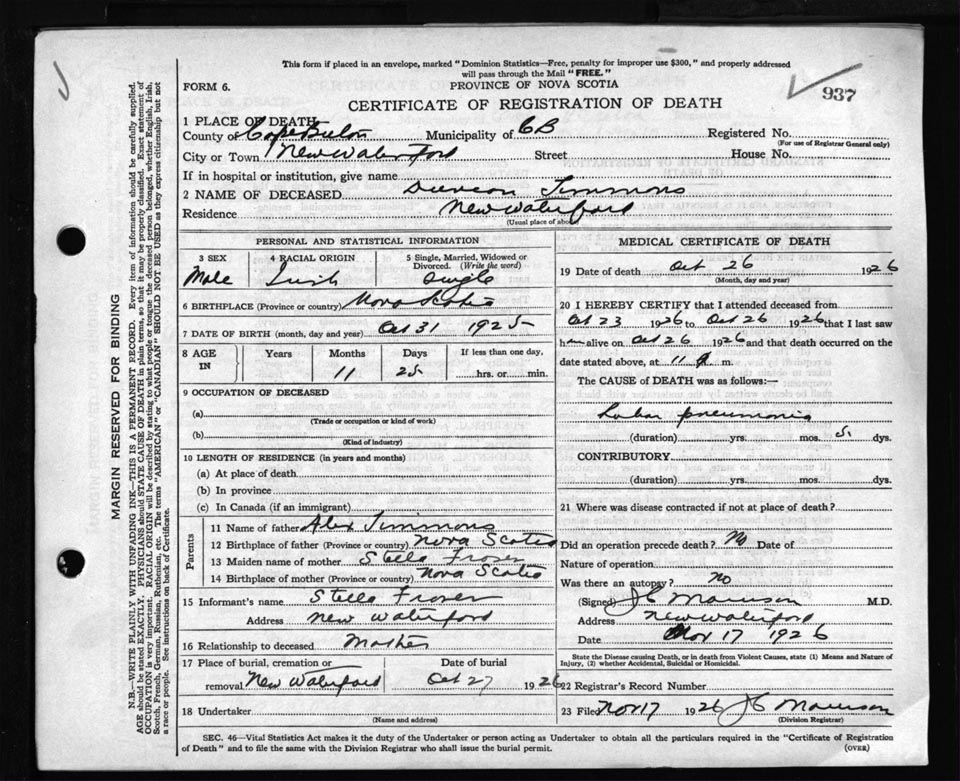 This form if placed in an envelope, marked "Dominion Statistics—Free, penalty for improper use $300," and properly addressed
will pass through the Mail "FREE."
FORM 6.
PROVINCE OF NOVA SCOTIA
937
CERTIFICATE OF REGISTRATION OF DEATH
1 PLACE OF DEATH
County of Cape Breton Municipality of CB Registered No.
(For use of Registrar General only)
City or Town New Waterford Street House No.
If in hospital or institution, give name
2 NAME OF DECEASED Duncan Timmons
Residence New Waterford
(Usual place of abode)
PERSONAL AND STATISTICAL INFORMATION
3 SEX 4 RACIAL ORIGIN 5 Single, Married, Widowed or Divorced. (Write the word)
Male Irish Single
6 BIRTHPLACE (Province or country) Nova Scotia
7 DATE OF BIRTH (month, day and year) Oct 31 1925
8 AGE IN Years Months Days If less than one day,
11 25 hrs. or min.
9 OCCUPATION OF DECEASED
(a)
(Trade or occupation or kind of work)
(b)
(Kind of industry)
10 LENGTH OF RESIDENCE (in years and months)
(a) At place of death
(b) In province
(c) In Canada (if an immigrant)
Parents
11 Name of father Alex Timmons
12 Birthplace of father (Province or country) Nova Scotia
13 Maiden name of mother Stella Fraser
14 Birthplace of mother (Province or country) Nova Scotia
15 Informant's name Stella Fraser
Address New Waterford
16 Relationship to deceased Mother
17 Place of burial, cremation or Date of burial
removal New Waterford Oct 27 1926
18 Undertaker
(Name and address)
MEDICAL CERTIFICATE OF DEATH
19 Date of death Oct 26 1926
(Month, day and year)
20 I HEREBY CERTIFY that I attended deceased from
Oct 23 1926 to Oct 26 1926 that I last saw
him alive on Oct 26 1926 and that death occurred on the
date stated above, at 11 m.
The CAUSE of DEATH was as follows:—
Lobar pneumonia
(duration) yrs. mos. 5 dys.
CONTRIBUTORY
(duration) yrs. mos. dys.
21 Where was disease contracted if not at place of death?
Did an operation precede death? No Date of
Nature of operation
Was there an autopsy? no
(Signed) J C Morrison M.D.
Address New Waterford
Date Nov 17 1926
State the Disease causing Death, or in death from Violent Causes, state (1) Means and Nature of
Injury, (2) whether Accidental, Suicidal or Homicidal.
22 Registrar's Record Number
23 Filed Nov 17 1926 J C Morrison
(Division Registrar)
SEC. 46—Vital Statistics Act makes it the duty of the Undertaker or person acting as Undertaker to obtain all the particulars required in the "Certificate of Registration
of Death" and to file the same with the Division Registrar who shall issue the burial permit.
(OVER)
MARGIN RESERVED FOR BINDING
N.B.—WRITE PLAINLY WITH UNFADING INK—THIS IS A PERMANENT RECORD. Every item of information should be carefully supplied.
AGE should be stated EXACTLY. PHYSICIANS should STATE CAUSE OF DEATH in plain terms, so that it may be properly classified. Exact statement of
OCCUPATION is very important. RACIAL ORIGIN will be described by stating to what people or tongue the deceased person belonged, whether English, Irish,
Scotch, French, German, Russian, Ruthenian, etc. The terms "AMERICAN" or "CANADIAN" SHOULD NOT BE USED as they express citizenship but not
a race or people. See instructions on back of Certificate.